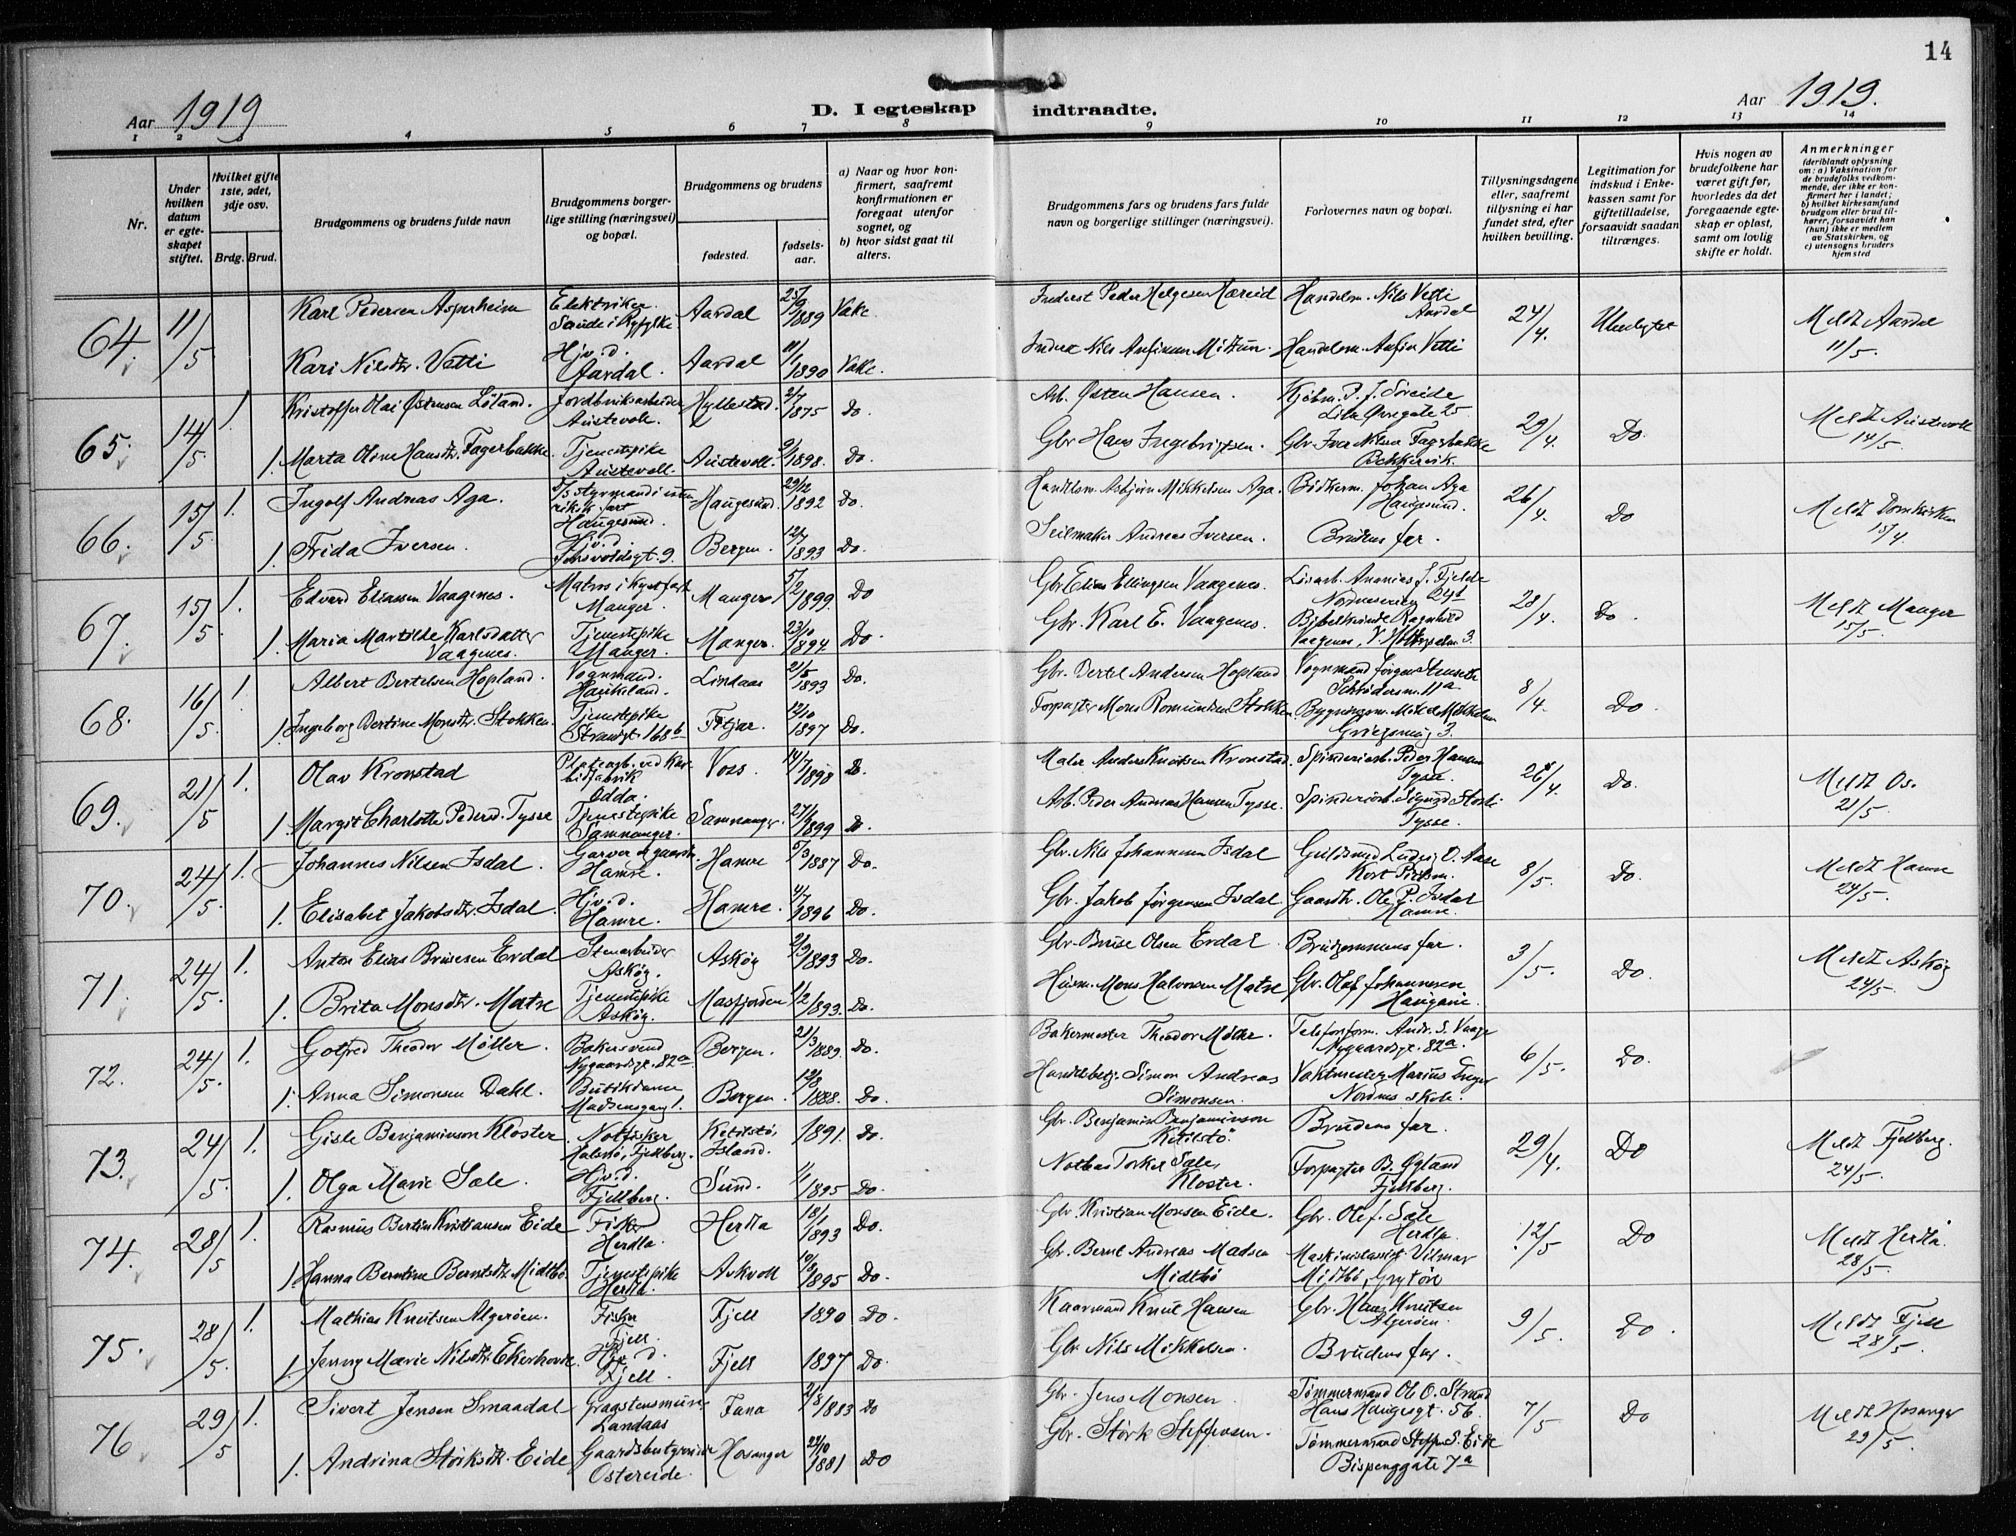 14
Aar 1919
D. I egteskap indtraadte.
Aar 1919.
1 2 3 4 5 6 7 8 9 10 11 12 13 14
Nr.
Under hvilken datum er egteskapet stiftet.
Hvilket gifte 1ste, 2det, 3dje osv.
Brdg. Brud.
Brudgommens og brudens fulde navn
Brudgommens borgerlige stilling (næringsvei) og bopæl.
Brudgommens og brudens
fødested.
fødselsaar.
a) Naar og hvor konfirmert, saafremt konfirmationen er foregaat utenfor sognet, og
b) hvor sidst gaat til alters.
Brudgommens fars og brudens fars fulde navn og borgerlige stillinger (næringsvei).
Forlovernes navn og bopæl.
Tillysningsdagene eller, saafremt tillysning ei har fundet sted, efter hvilken bevilling.
Legitimation for indskud i Enkekassen samt for giftetilladelse, forsaavidt saadan tiltrænges.
Hvis nogen av brudefolkene har været gift før, hvorledes da det foregaaende egteskap er opløst, samt om lovlig skifte er holdt.
Anmerkninger
(deriblandt oplysning om: a) Vaksination for de brudefolks vedkommende, der ikke er konfirmert her i landet; b) hvilket kirkesamfund brudgom eller brud tilhører, forsaavidt han (hun) ikke er medlem av Statskirken, og c) utensogns bruders hjemsted
64. 11/5 Karl Pedersen Asperheim Elektriker Saude i Ryfylke Aardal 25/9 1889 Vake. Inderst Peder Helgesen Hæreid Handelsm. Nils Vetti Aardal 24/4. Ubenyttet Meldt Aardal 11/5.
Kari Nilsdtr. Vetti Hjv. d. Aardal. Aardal 11/1 1890 Vake. Handelsm. Anfin Vetti
65. 14/5 1. Kristoffer Olai Østensen Løland. Jordbruksarbeider Austevoll. Hyllestad. 2/7 1875 Do. Arb. Østen Hansen. Kjøbm. P. J. Søreide Lille Øvregate 25 29/4. Do. Meldt Austevoll 14/5.
1. Marta Oline Hansdtr. Fagerbakke Tjenestepike Austevoll. Austevoll. 9/1 1898. Do. Gbr. Hans Ingebrigtsen. Gbr. Iver Nilsen Fagerbakke Bekkervik.
66. 15/5 1. Ingolf Andreas Aga. Haugesund. Haugesund. 29/12 1892 Do. Handelsm. Asbjørn Mikkelsen Aga. Bødkerm. Johan Aga Haugesund. 26/4. Do Meldt Domkirken 15/4.
1. Frida Iversen. Hjv. d. Bergen. 12/7 1893 Do. Seilmaker Andreas Iversen. Brudens far.
67. 15/5 1. Edvard Eliassen Vaagenes. Matros i kystfart Manger. Manger 5/2 1899. Do Gbr. Elias Ellingsen Vaagenes. Ananias J. Fjelde Nordnesveien 24d 28/4. Do. Meldt Manger 15/5.
1. Maria Martilde Karlsdatter Vaagenes. Tjenestepike Manger. Manger. 23/10 1894 Do. Gbr. Karl E. Vaagenes. Bibelkvinde Ragnhild Vaagenes,
68. 16/5 1. Albert Bertelsen Hopland. Vognmand. Haukeland. Lindaas 21/5 1893 Do. Gbr. Bertel Andersen Hopland Vognmand Jørgen Stenseth 11a 8/4. Do.
1. Ingeborg Bertine Monsdtr. Stokken Tjenestepike Strandgt. 168b Fitjar. 12/10 1897 Do. Forpagter Mons Romundsen Stokken Mikkelsen 3.
69. 21/5 1. Olav Kronstad Platearb. ved Karbidfabrik Odda. Voss. 14/7 1898 Do. Maler Anders Knutsen Kronstad. Spinderiarb. Peder Hansen Tysse. 26/4. Do. Meldt Os. 21/5.
1. Margit Charlotte Pedersd. Tysse Tjenestepike Samnanger. Samnanger 1899 Do. Arb. Peder Andreas Hansen Tysse. Spinderiarb. Sigurd Tysse.
70. 24/5. 1. Johannes Nilsen Isdal. Garver Hamre. Hamre 5/3 1887 Do. Gbr. Nils Johannesen Isdal Guldsmed Ludvig O. 8/5. Do. Meldt Hamre 24/5.
1. Elisabet Jakobsdtr. Isdal. Hjv. d. Hamre. Hamre. 1896 Do. Gbr. Jakob Jørgensen Isdal Gaardbr. Ole P. Isdal Hamre.
71. 24/5. 1. Anton Elias Brusesen Erdal Stenarbeider Askøy. Askøy 2/9 1893 Do. Gbr. Bruse Olsen Erdal Brudgommens far. 3/5. Do. Meldt Askøy 24/5.
1. Brita Monsdtr. Matre Tjenestepike Askøy. Masfjorden 1/2 1893. Do. Husm. Mons Halvorsen Matre Gbr. Olaf Johannesen
72. 24/5. 1. Gotfred Theodor Møller. Bakersvend Nygaardsgt. 82a Bergen. 21/3 1889. Do. Bakermester Theodor Møller. Telefonform. Andr. S. Vaage Nygaardsgt. 82a. 6/5. Do.
1. Anna Simonsen Dahl. Butikdame Bergen. 1888. Do. Simon Andreas Simonsen. Vaktmester Marius Nordnes skole.
73. 24/5. 1. Gisle Benjaminson Kloster. Notfisker Fjellberg. Ketilstö, Island. 1891. Do. Gbr. Benjamin Benjaminson Ketilstö Brudens far. 29/4. Do Meldt Fjellberg. 24/5.
1. Olga Marie Sæle. Hjv. d. Fjellberg. Sund. 1/1 1895 Do. Notbas Torkel Sæle, Kloster. Forpagter B. Øgland Fjellberg.
74. 28/5 1. Rasmus Bertin Kristiansen Eide Fisker Herdla. Herdla 18/1 1893 Do. Gbr. Kristian Monsen Eide. Gbr. Ole J. Sæle Herdla 12/5 Do Meldt Herdla. 28/5.
1. Hanna Berntine Berntsdtr. Midtbø Tjenestepike Herdla. Askvoll 1895 Do. Gbr. Bernt Andreas Madsen Midtbø Vilmar Midtbø,
75. 28/5. 1. Mathias Knutsen Algerøen. Fisker Fjell. Fjell 1890 Do. Kaarmand Knut Hansen Gbr. Hans Knutsen Algerøen. 9/5. Do. Meldt Fjell 28/5.
1. Jenny Marie Nilsdtr. Ekerhovde Hjv. d. Fjell. Fjell 1897 Do. Gbr. Nils Mikkelsen. Brudens far.
76. 29/5 1. Sivert Jensen Smaadal Graastensmurer Landaas Fana 2/8 1883 Do Gbr. Jens Monsen Tømmermand Ole O. Strand Hans Haugesgt. 56. 7/5 Do Meldt Hosanger 29/5.
1. Andrina Størksdtr. Eide Gaardsbestyrerinde Ostereide. Hosanger 24/10 1881 Do Gbr. Størk Steffensen. Tømmermand Steffen S. Eide Bispenggate 7a